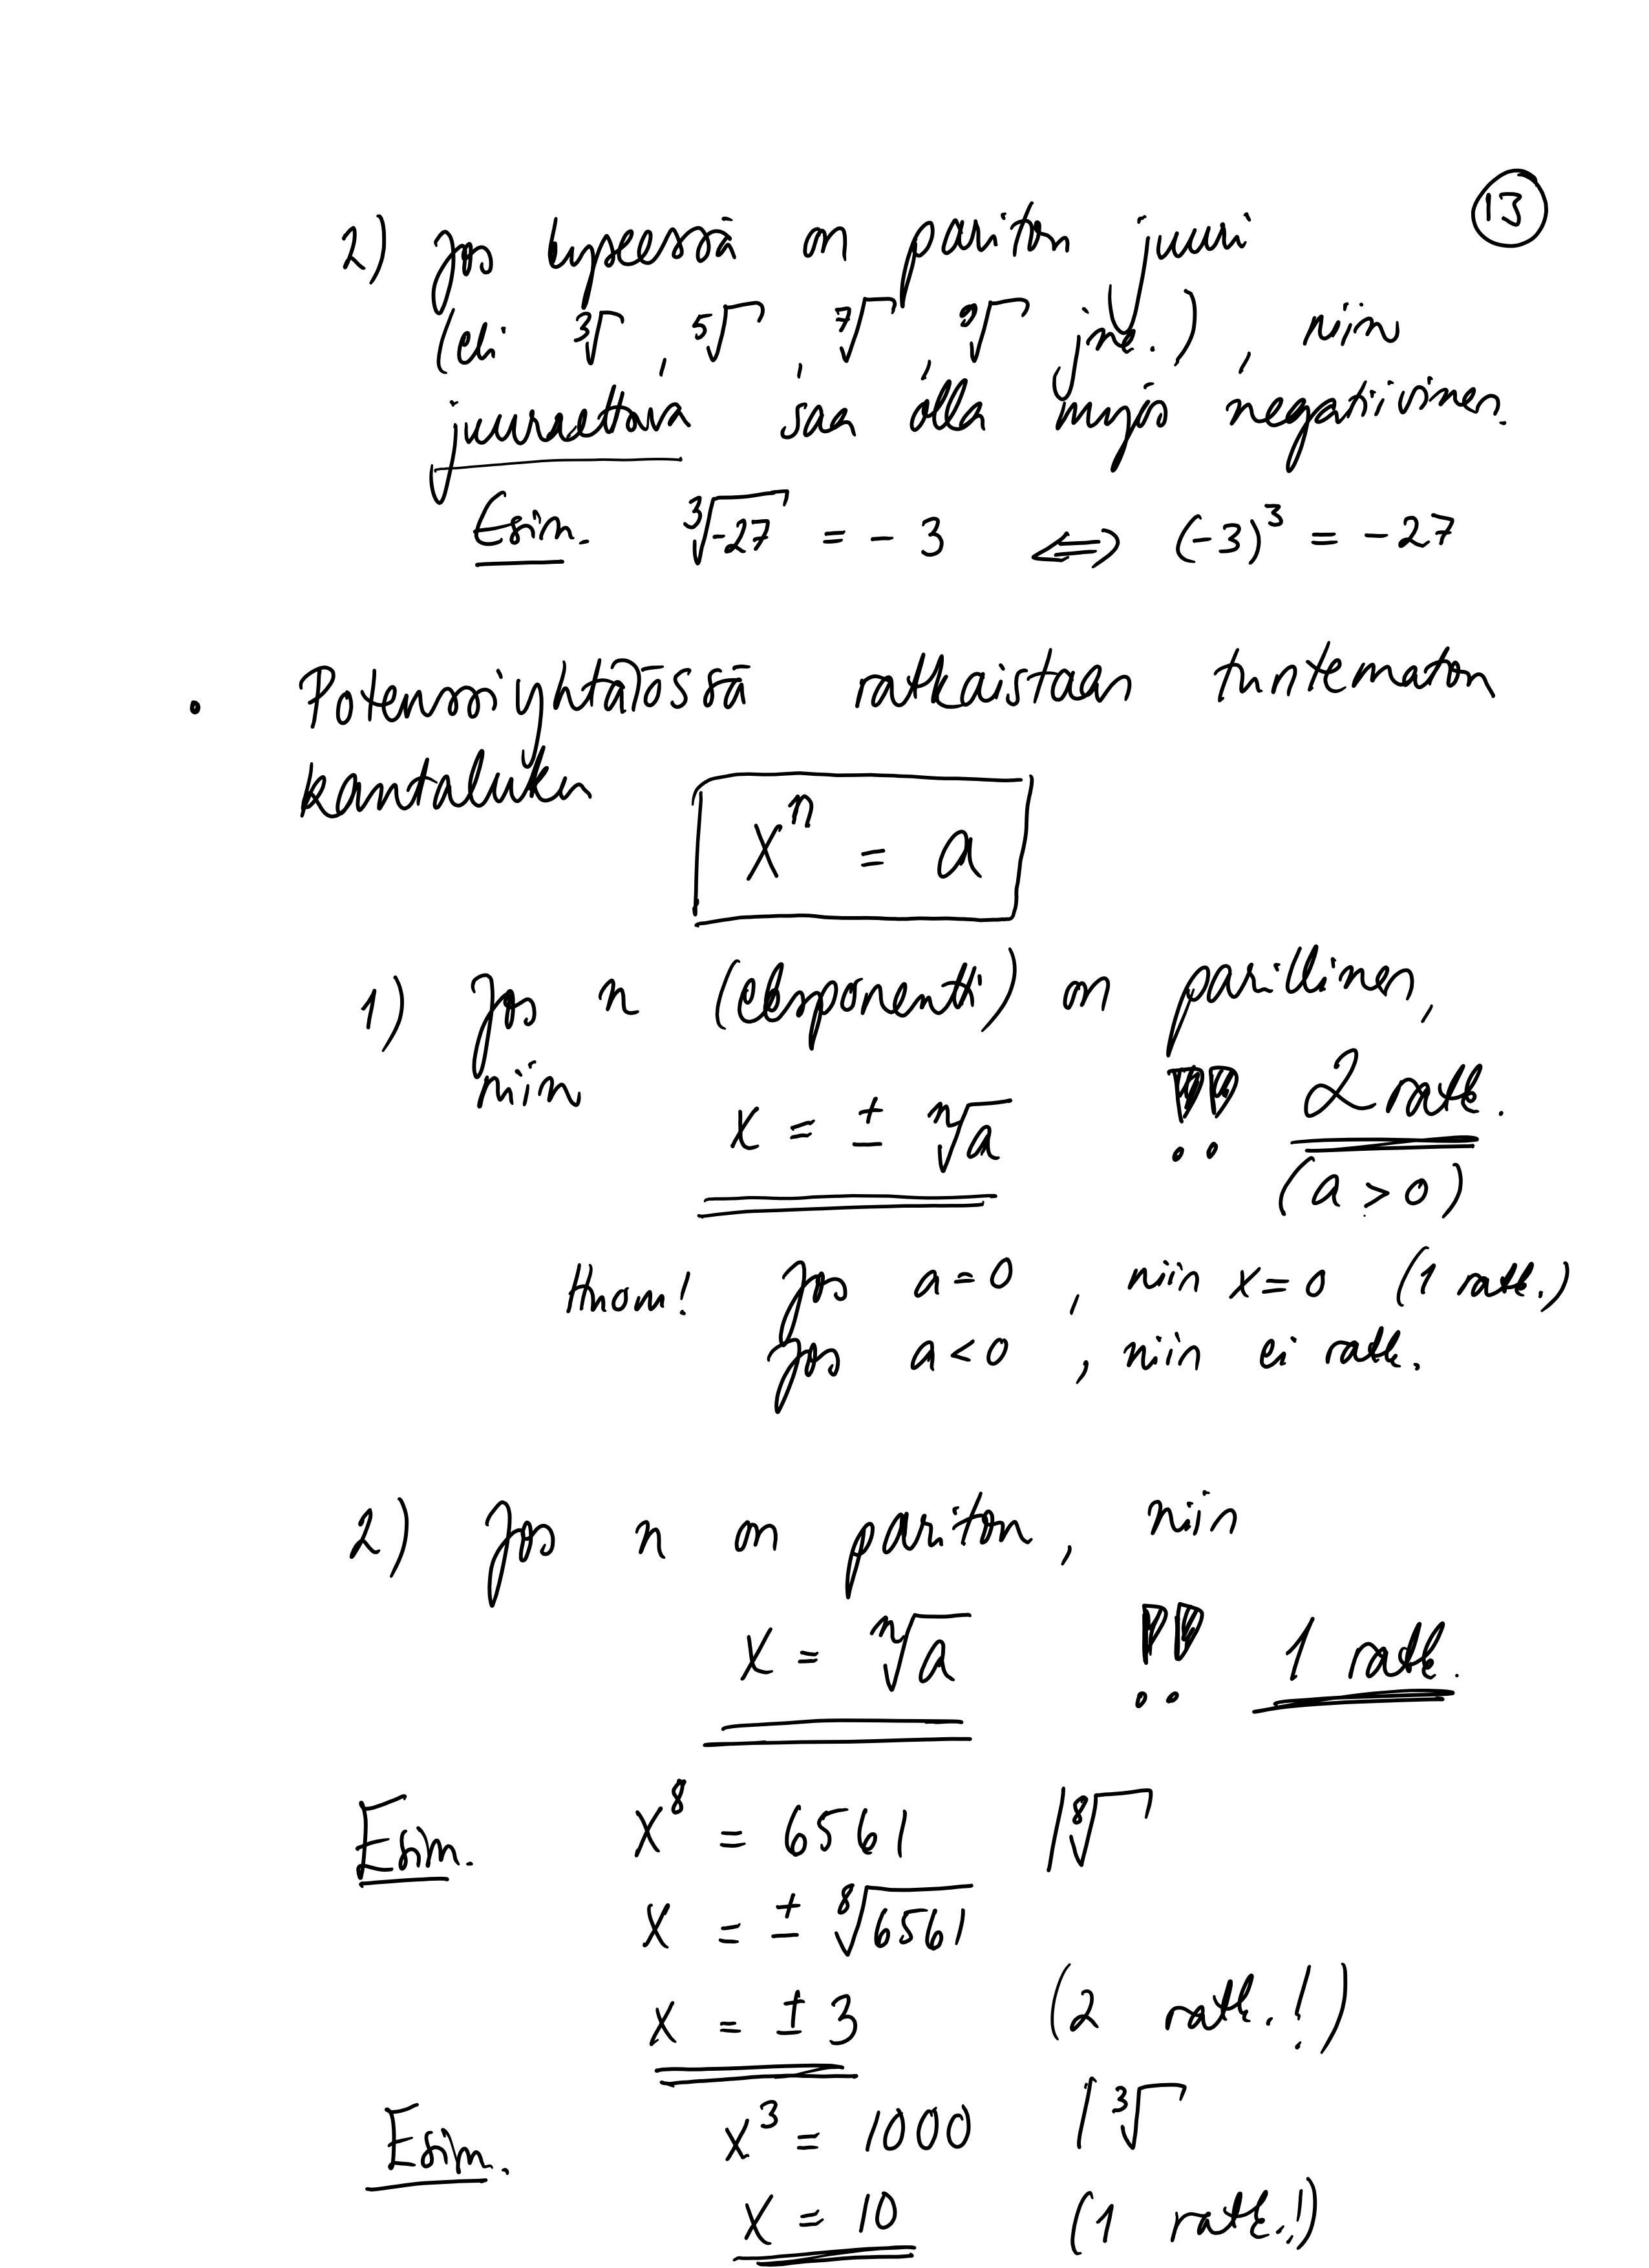 13
2) Jos kyseessä on pariton juuri
(eli ³√ , ⁵√ , ⁷√ , ⁹√ jne.) , niin
juurrettava saa olla myös negatiivinen.
Esim. ³√-27 = -3 ⇔ (-3)³ = -27
• Potenssiyhtälössä ratkaistaan tuntematon
kantaluku
xⁿ = a
1) Jos n (eksponentti) on parillinen,
niin
x = ± ⁿ√a !! 2 ratk.
(a > 0)
Huom! Jos a = 0 , niin x = 0 (1 ratk.)
Jos a < 0 , niin ei ratk.
2) Jos n on pariton , niin
x = ⁿ√a !! 1 ratk.
Esim. x⁸ = 6561 | ⁸√
x = ± ⁸√6561
x = ± 3 (2 ratk.!)
Esim. x³ = 1000 | ³√
x = 10 (1 ratk.!)